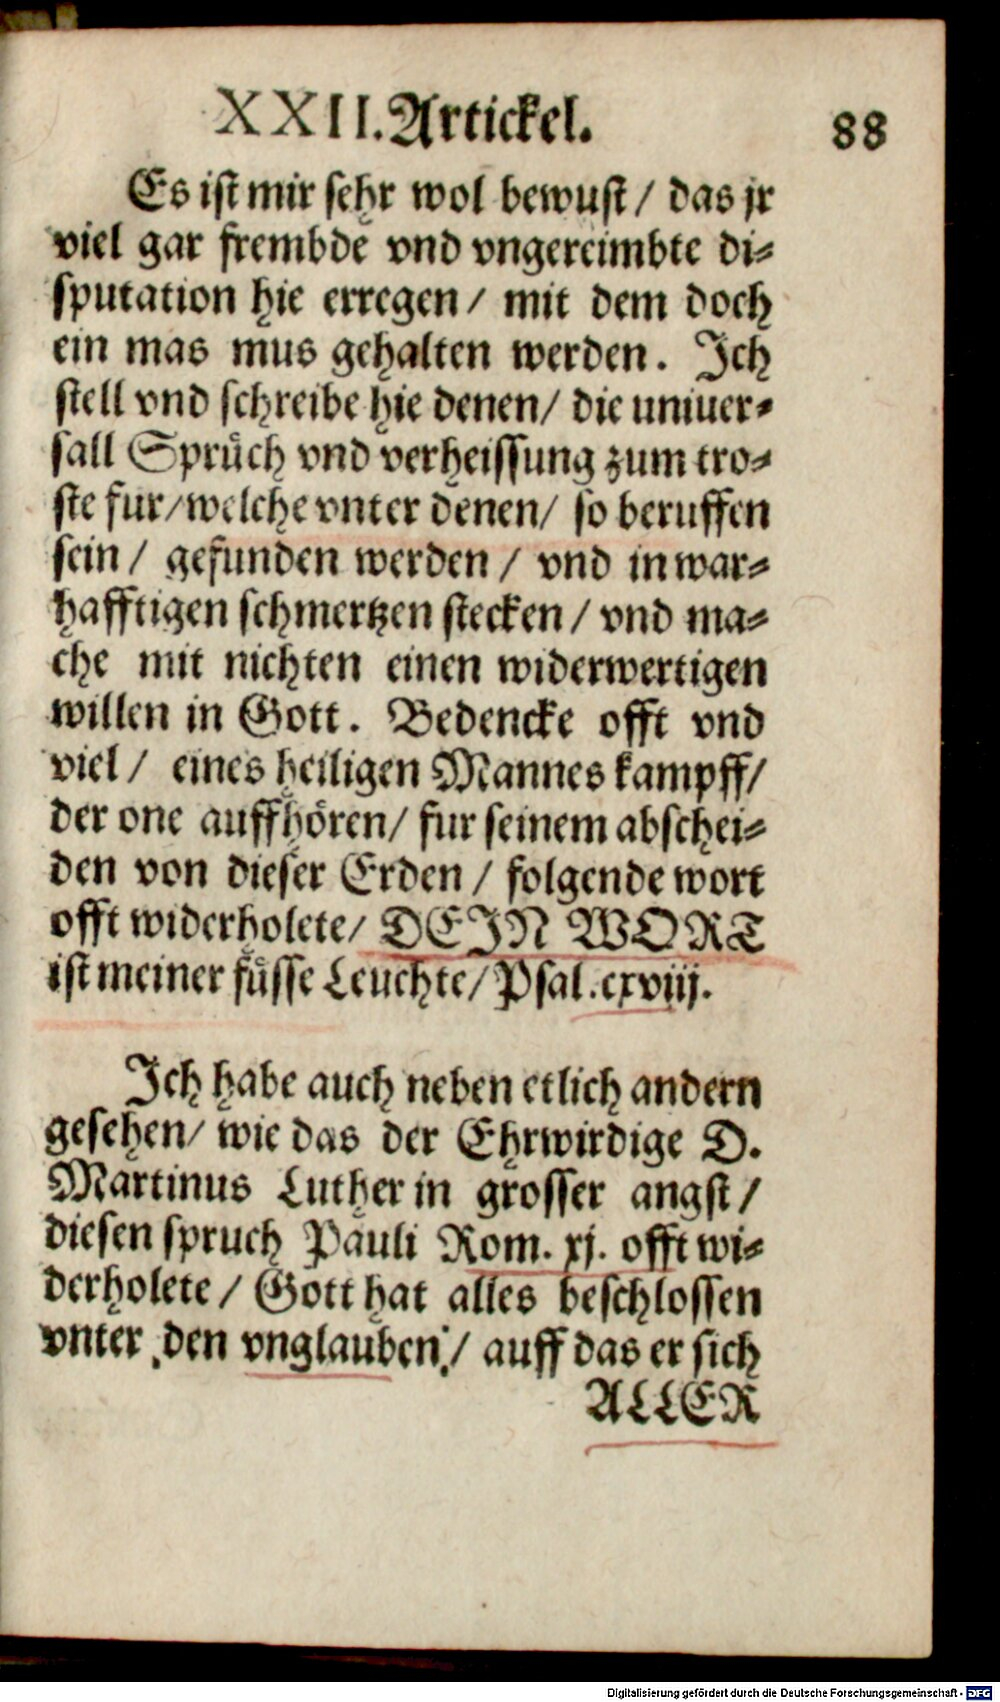 XXII. Artickel.
88
Es ist mir sehr wol bewust / das jr
viel gar frembde vnd vngereimbte di-
sputation hie erregen / mit dem doch
ein mas mus gehalten werden. Ich
stell vnd schreibe hie denen / die uniuer-
sall Sprüch vnd verheissung zum tro-
ste fur / welche vnter denen / so beruffen
sein / gefunden werden / vnd in war-
hafftigen schmertzen stecken / vnd ma-
che mit nichten einen widerwertigen
willen in Gott. Bedencke offt vnd
viel / eines heiligen Mannes kampff /
der one auffhören / fur seinem abschei-
den von dieser Erden / folgende wort
offt widerholete / DEIN WORT
ist meiner füsse Leuchte / Psal. cxviij.
Ich habe auch neben etlich andern
gesehen / wie das der Ehrwirdige D.
Martinus Luther in grosser angst /
diesen spruch Pauli Rom. xj. offt wi-
derholete / Gott hat alles beschlossen
vnter den vnglauben / auff das er sich
ALLER
Digitalisierung gefördert durch die Deutsche Forschungsgemeinschaft - DFG